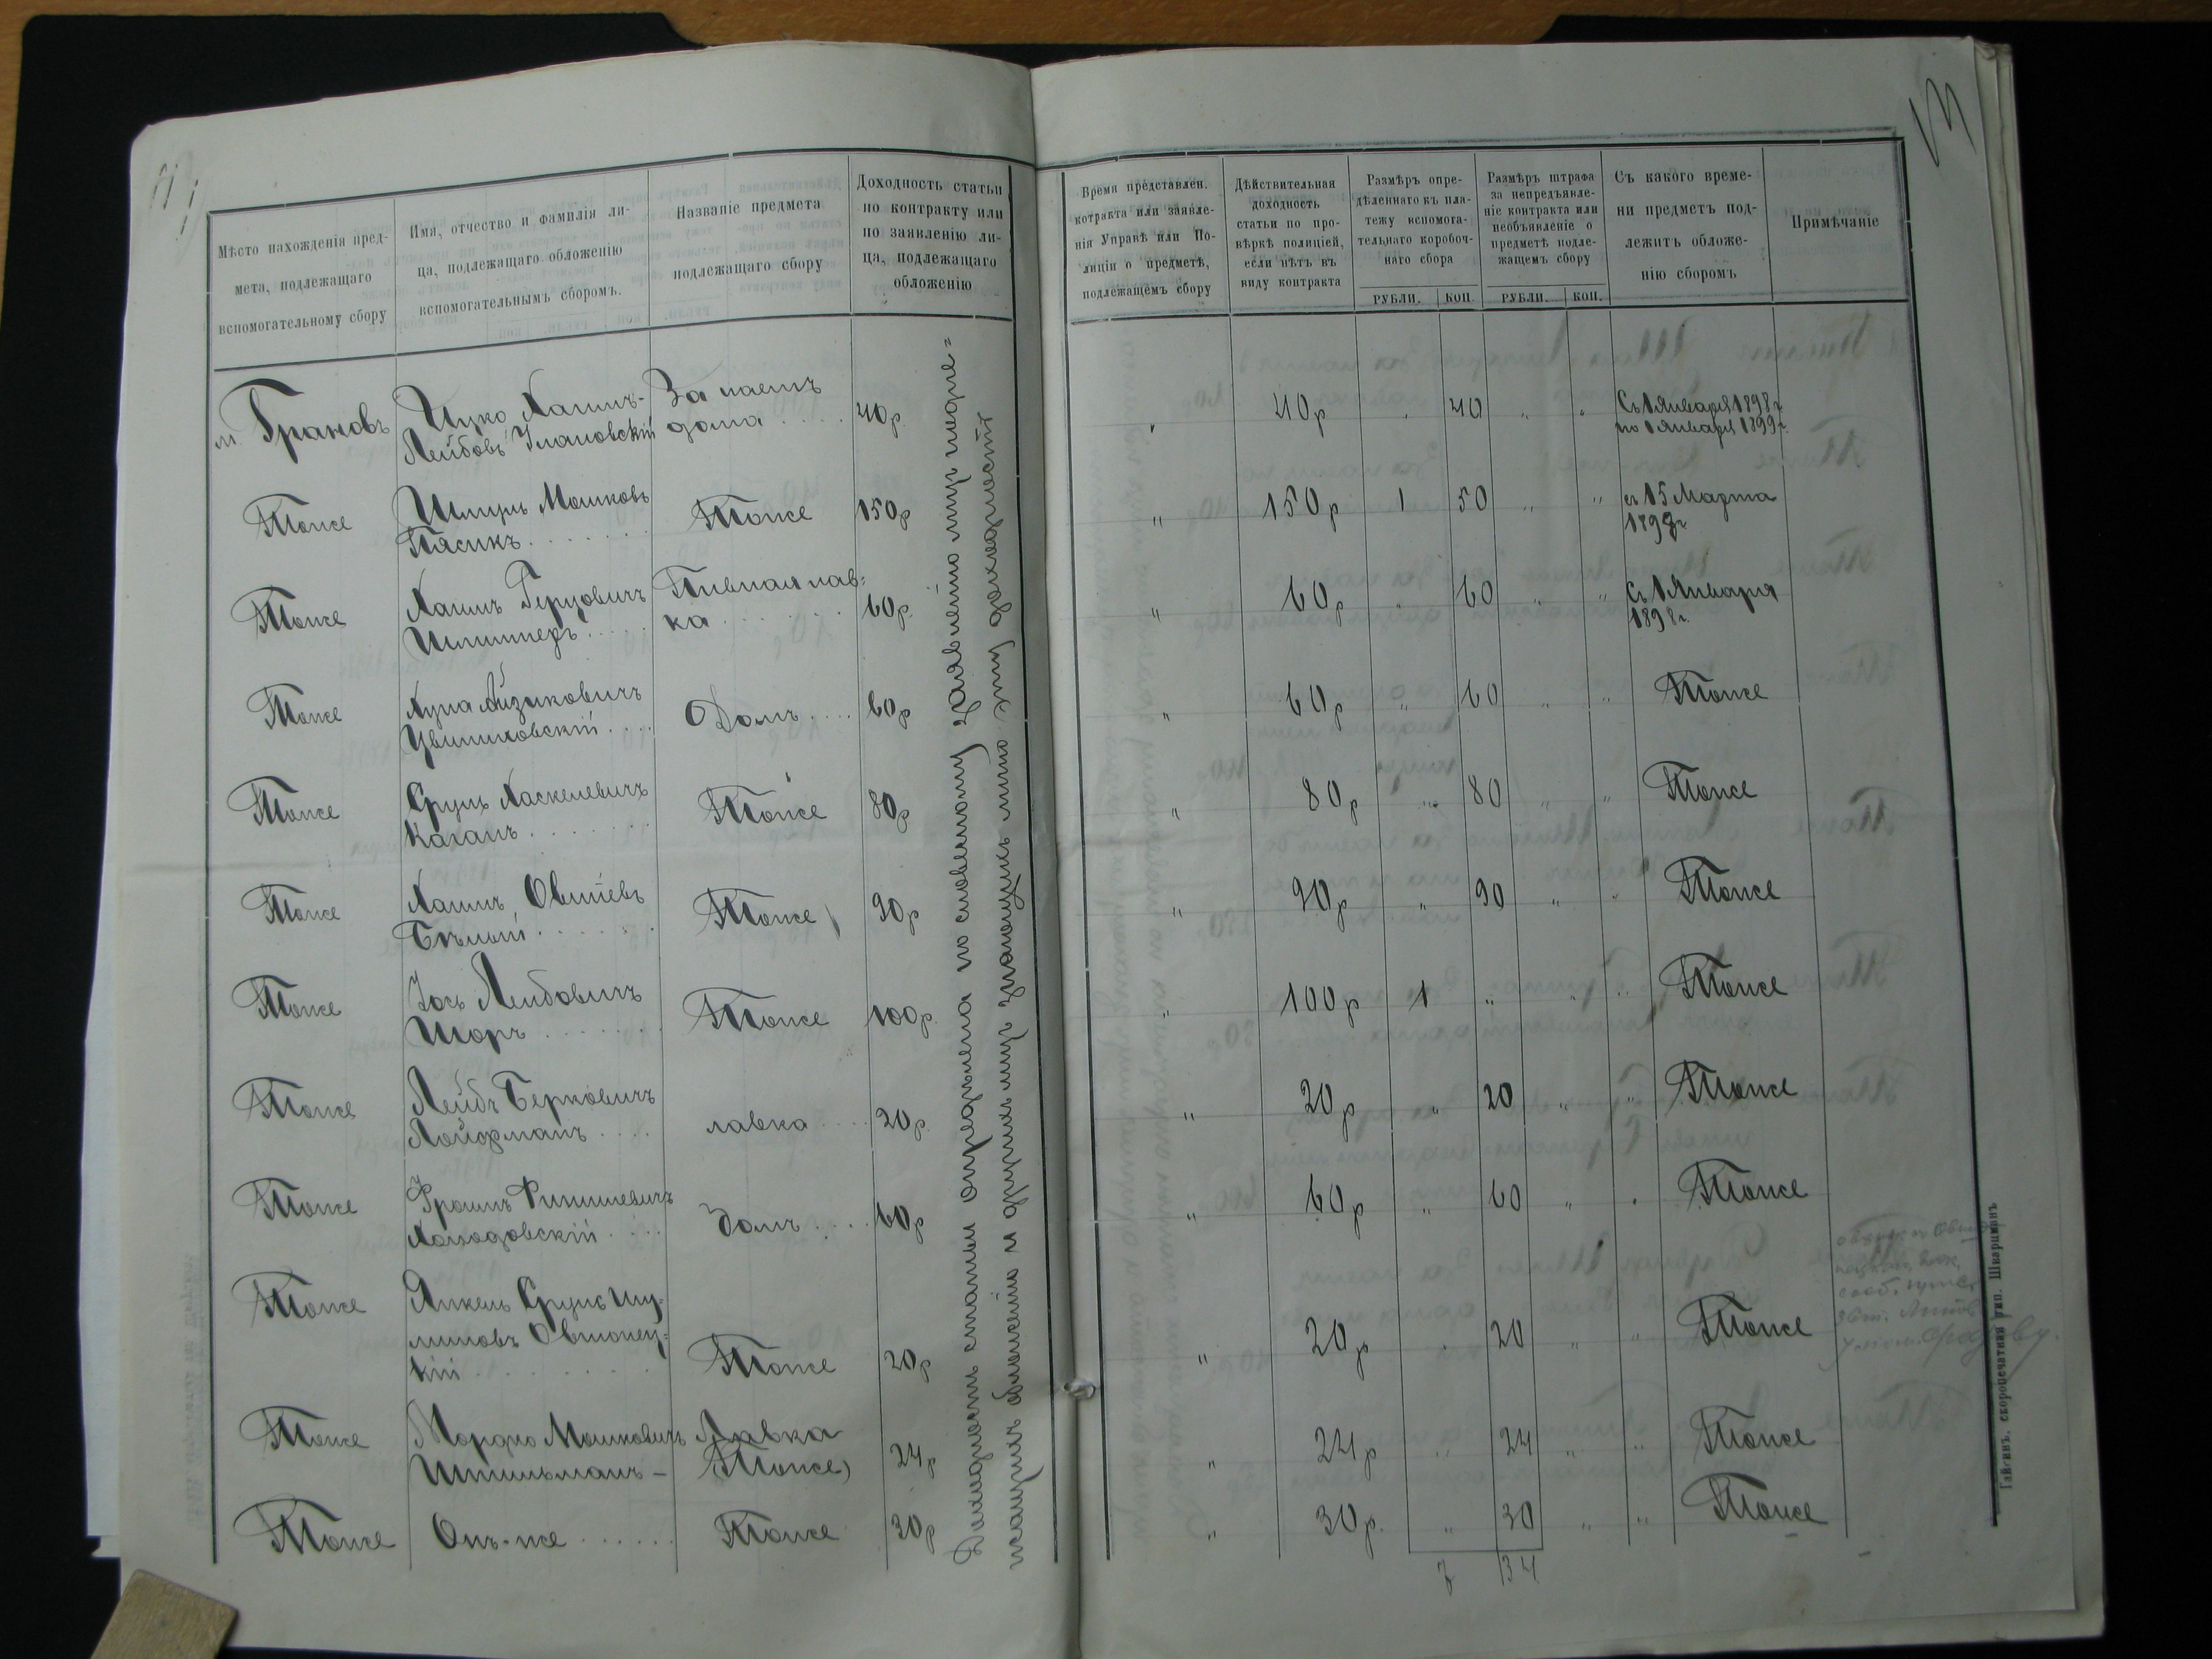 Мѣсто нахожденія пред-
мета, подлежащаго
вспомогательному сбору
Имя, отчество и фамилія ли-
ца, подлежащаго обложенію
вспомогательнымъ сборомъ.
Названіе предмета
подлежащаго сбору
Доходность статьи
по контракту или
по заявленію ли-
ца, подлежащаго
обложенію
м. Грановъ
Ицко Хаимъ-
Лейбовъ Улановскій
За наемъ
дома
40 р.
Тоже
Шмуль Мошковъ
Пясикъ
Тоже
150 р
Тоже
Хаимъ Герцовичъ
Пивная лав-
ка
60 р.
Тоже
Хуна Айзиковичъ
Домъ
60 р
Тоже
Сруль Хаскелевичъ
Каганъ
Тоже
80 р
Тоже
Хаимъ Овшіевъ
Бѣлый
Тоже
90 р
Тоже
Іось Лейбовичъ
Шоръ
Тоже
100 р.
Тоже
Лейбъ Берковичъ
Лойфманъ
лавка
20 р.
Тоже
Фроимъ
Холодовскій
Домъ
60 р
Тоже
Янкель Сруль Шу-
лимовъ
кій
Тоже
20 р
Тоже
Мордко Мошковичъ
Штильманъ -
Лавка
(Тоже)
24 р
Тоже
Онъ-же
Тоже
30 р
Доходность статьи опредѣлена по словесному заявленію лицъ подле-
жащихъ обложенію и другихъ лицъ знающихъ эту доходность
Время представлен.
котракта или заявле-
нія Управѣ или По-
лиціи о предметѣ,
подлежащемъ сбору
Дѣйствительная
доходность
статьи по про-
вѣркѣ полиціей,
если нѣтъ въ
виду контракта
Размѣръ опре-
дѣленнаго къ пла-
тежу вспомога-
тельнаго коробоч-
наго сбора
РУБЛИ. КОП.
Размѣръ штрафа
за непредъявле-
ніе контракта или
необъявленіе о
предметѣ подле-
жащемъ сбору
РУБЛИ. КОП.
Съ какого време-
ни предметъ под-
лежитъ обложе-
нію сборомъ
Примѣчаніе
" 40 р " 40 " " Съ 1 Января 1898 г.
по 1 Января 1899 г.
" 150 р 1 50 " " съ 15 Марта
1898 г
" 60 р " 60 " " Съ 1 Января
1898 г.
" 60 р " 60 " " Тоже
" 80 р " 80 " " Тоже
" 90 р " 90 " " Тоже
" 100 р 1 " " " Тоже
" 20 р " 20 " " Тоже
" 60 р " 60 " " Тоже
" 20 р " 20 " " Тоже
" 24 р " 24 " " Тоже
" 30 р. " 30 " " Тоже
7 34
Гайсинъ, скоропечатня тип. Шварцманъ